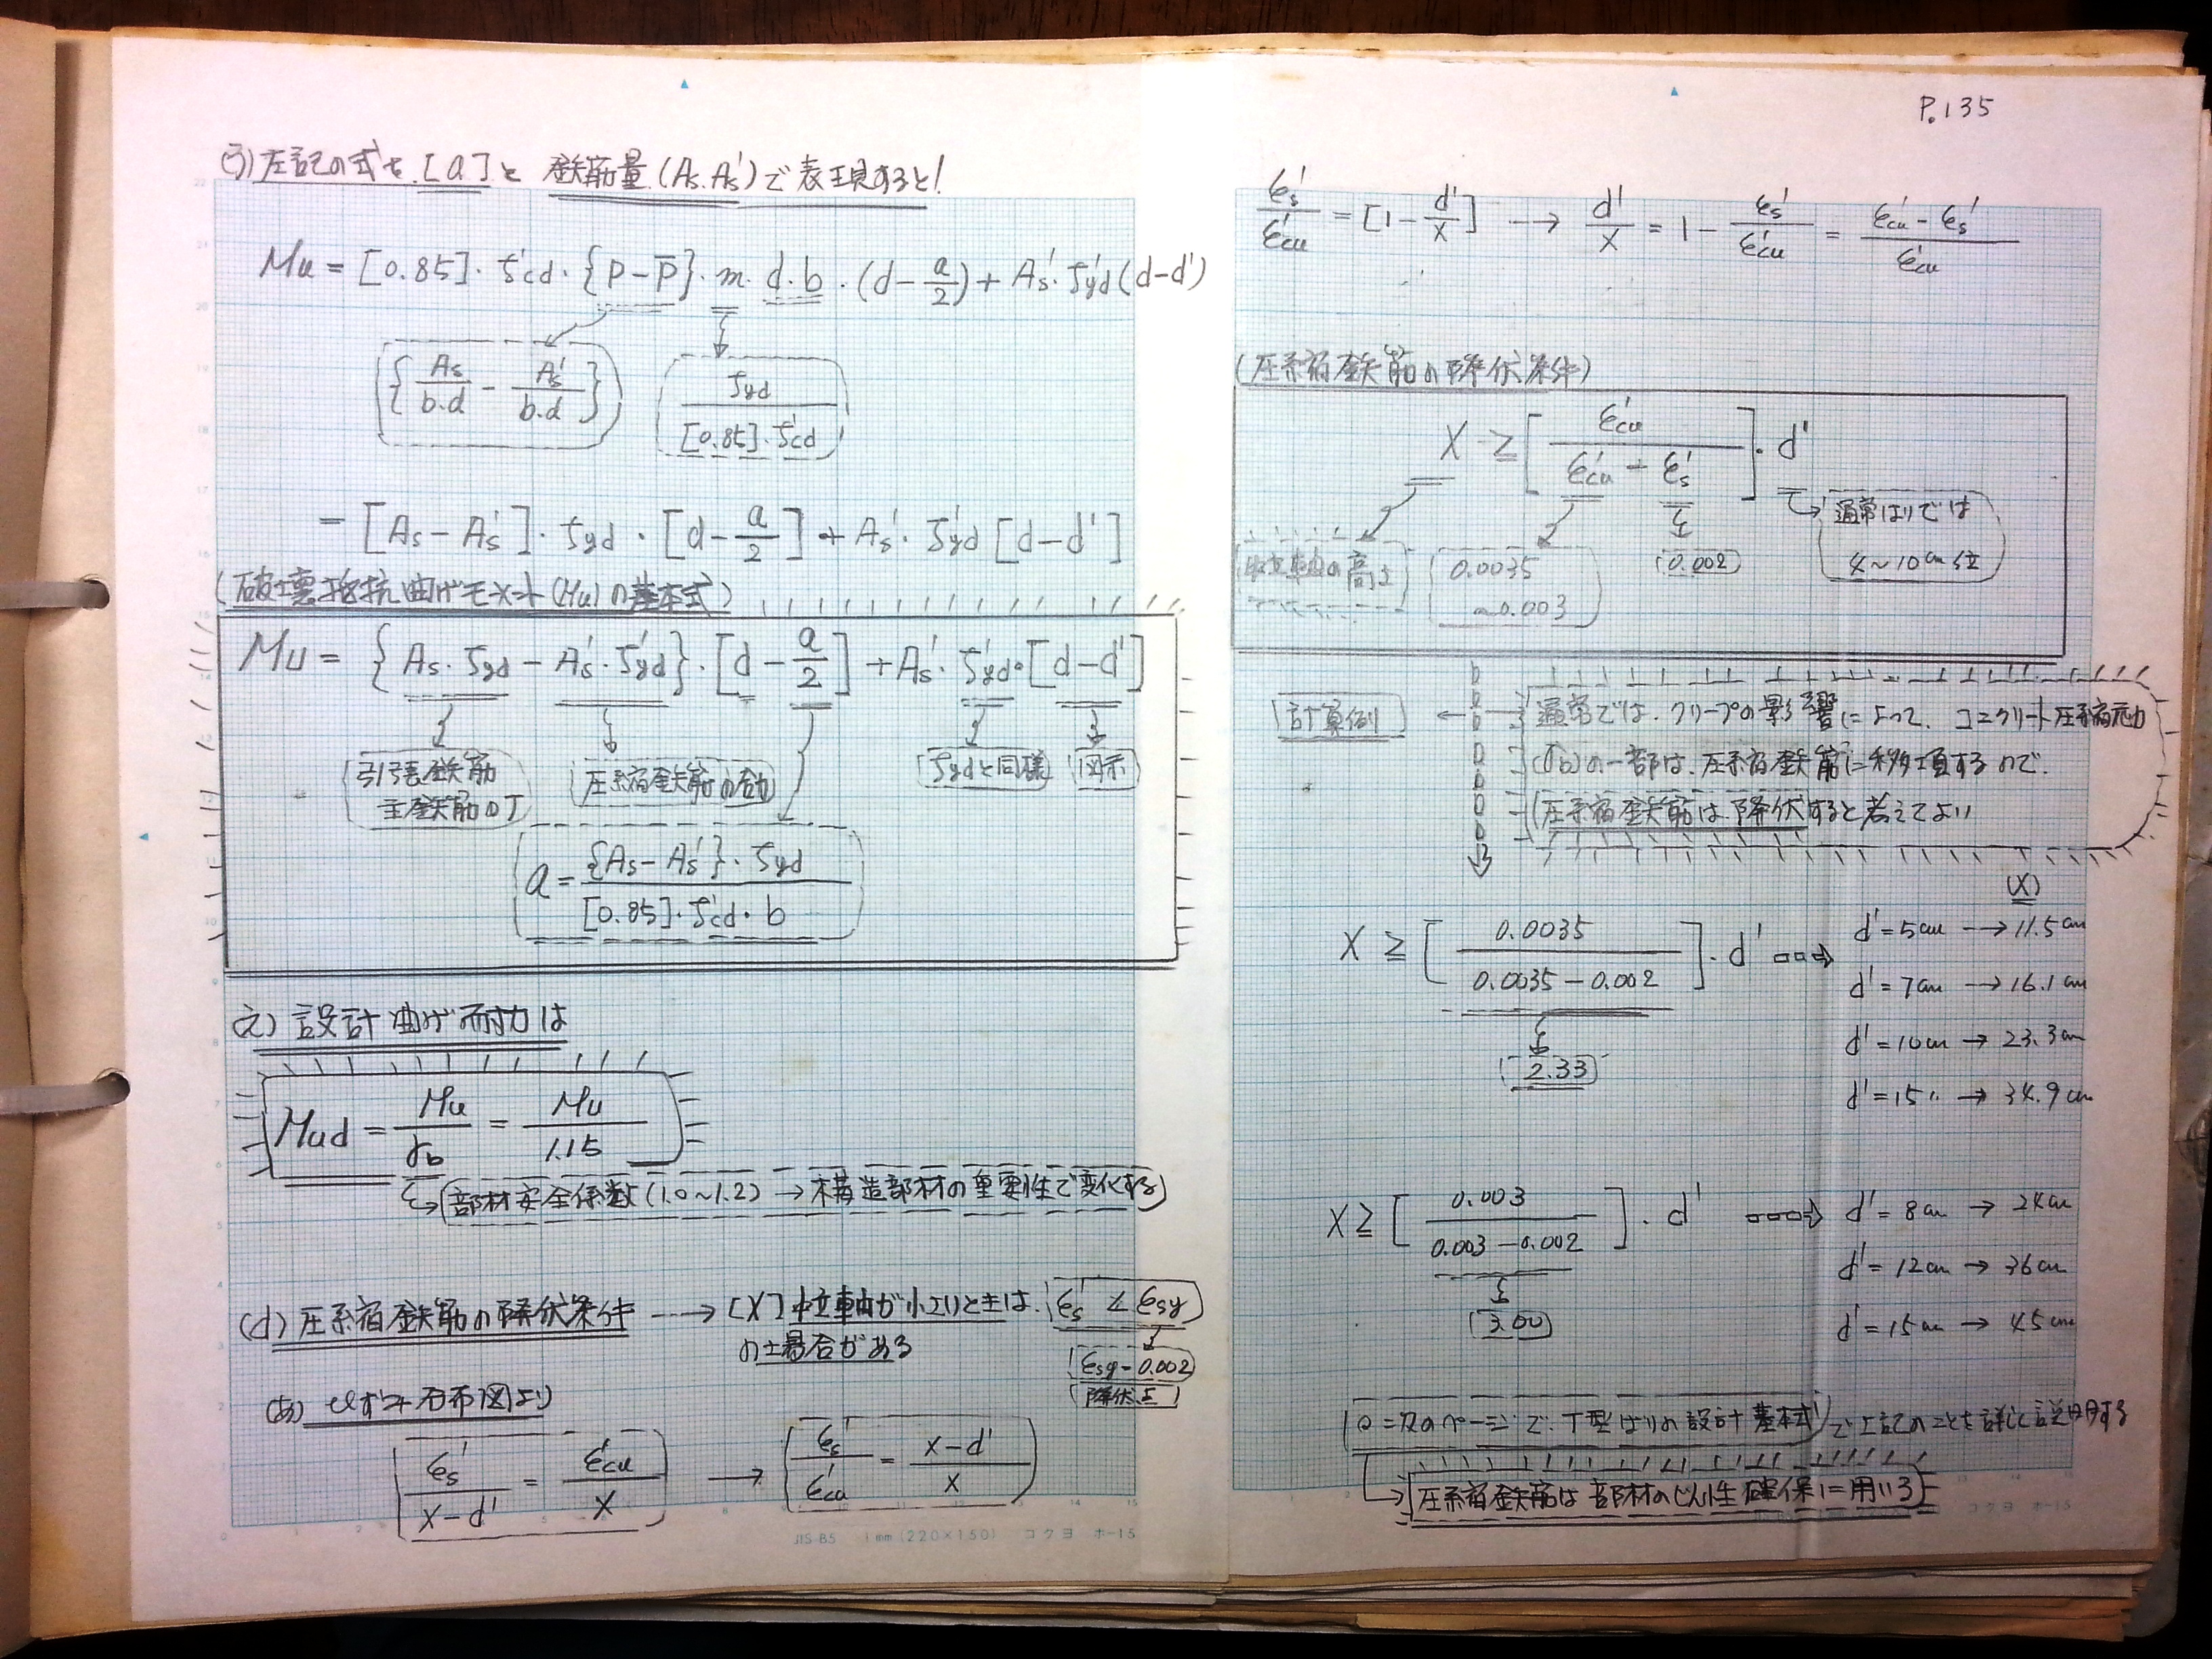 う)左記の式を[a]と 鉄筋量(As.As')で表現すると!
Mu = [0.85]・f'cd・{P-P̄}・m・d・b・(d-a/2)+As'・f'yd(d-d')
{As/b.d - As'/b.d}
fyd/[0.85]・f'cd
= [As-As']・fyd・[d-a/2]+As'・f'yd[d-d']
(破壊抵抗曲げモーメント(Mu)の基本式)
Mu = {As・fyd-As'・f'yd}・[d-a/2]+As'・f'yd・[d-d']
引張鉄筋
主鉄筋のT
圧縮鉄筋の合力
fydと同様
図示
a={As-As'}・fyd/[0.85]・f'cd・b
え)設計曲げ耐力は
Mud = Mu/γb = Mu/1.15
部材安全係数(1.0~1.2)→構造部材の重要性で変化する
(d)圧縮鉄筋の降伏条件 → [X]中立軸が小さいときは. εs' < εsy
の場合がある
εsy=0.002
降伏点
(あ) ひずみ分布図より
εs'/X-d' = ε'cu/X → εs'/ε'cu = X-d'/X
JIS B5 1mm(220×150) コクヨ ホ-15
P.135
εs'/ε'cu = [1-d'/X] → d'/X = 1-εs'/ε'cu = ε'cu-εs'/ε'cu
(圧縮鉄筋の降伏条件)
X ≧ [ε'cu/ε'cu-εs']・d'
通常はりでは
4~10cm位
中立軸の高さ
0.0035
~0.003
0.002
計算例
通常では.クリープの影響によって.コンクリート圧縮応力
(σb)の一部は.圧縮鉄筋に移項するので.
圧縮鉄筋は.降伏すると考えてよい
(X)
X ≧ [0.0035/0.0035-0.002]・d'
2.33
d'=5cm → 11.5cm
d'=7cm → 16.1cm
d'=10cm → 23.3cm
d'=15〃 → 34.9cm
X ≧ [0.003/0.003-0.002]・d'
3.00
d'=8cm → 24cm
d'=12cm → 36cm
d'=15cm → 45cm
○=次のページで.T型はりの設計基本式で上記のことを詳しく説明する
圧縮鉄筋は部材のじん性確保に用いる
コクヨ ホ-15